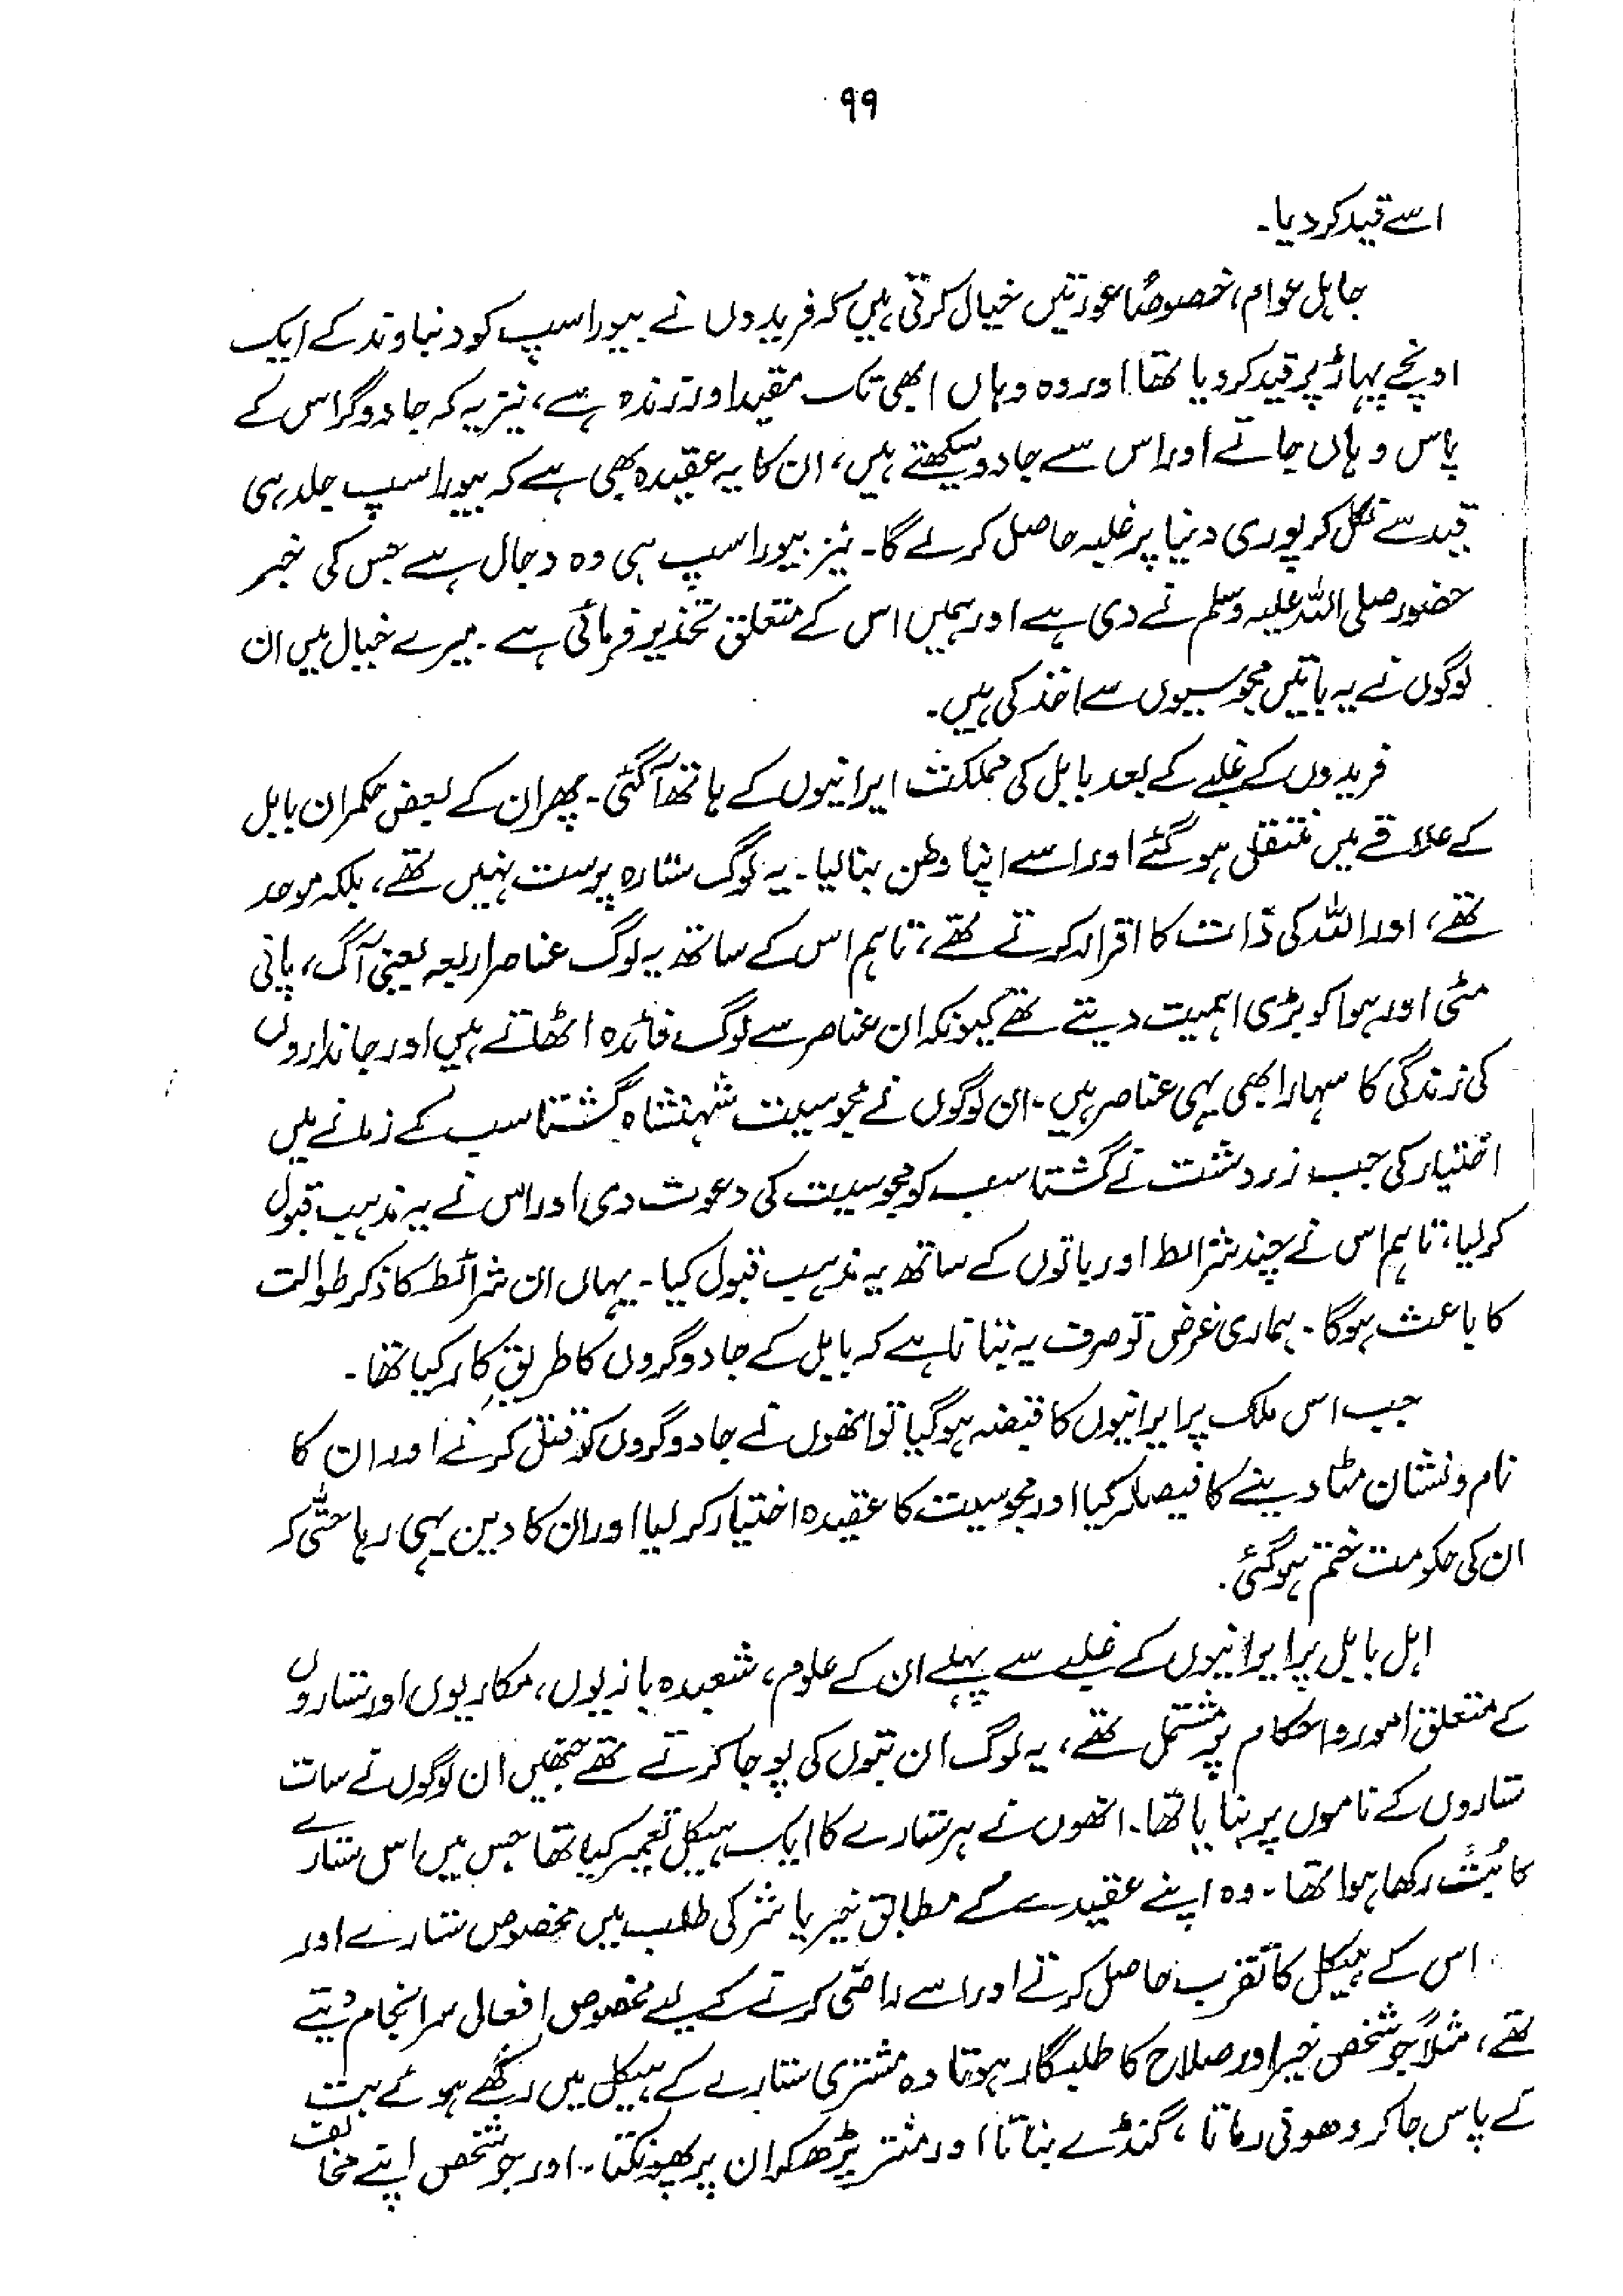 ۹۹
اسے قید کر دیا۔
جاہل عوام، خصوصًا عورتیں خیال کرتی ہیں کہ فریدوں نے بیوراسپ کو دنباوند کے ایک
اونچے پہاڑ پر قید کر دیا تھا اور وہ وہاں ابھی تک مقید اور زندہ ہے، نیز یہ کہ جادوگر اس کے
پاس وہاں جاتے اور اس سے جادو سیکھتے ہیں، ان کا یہ عقیدہ بھی ہے کہ بیوراسپ جلد ہی
قید سے نکل کر پوری دنیا پر غلبہ حاصل کر لے گا۔ نیز بیوراسپ ہی وہ دجال ہے جس کی خبر
حضور صلی اللہ علیہ وسلم نے دی ہے اور ہمیں اس کے متعلق تحذیر فرمائی ہے۔ میرے خیال میں ان
لوگوں نے یہ باتیں مجوسیوں سے اخذ کی ہیں۔
فریدوں کے غلبے کے بعد بابل کی مملکت ایرانیوں کے ہاتھ آگئی۔ پھر ان کے بعض حکمران بابل
کے علاقے میں منتقل ہو گئے اور اسے اپنا وطن بنا لیا۔ یہ لوگ ستارہ پرست نہیں تھے، بلکہ موحد
تھے، اور اللہ کی ذات کا اقرار کرتے تھے، تاہم اس کے ساتھ یہ لوگ عناصر اربعہ یعنی آگ، پانی
مٹی اور ہوا کو بڑی اہمیت دیتے تھے کیونکہ ان عناصر سے لوگ فائدہ اٹھاتے ہیں اور جانداروں
کی زندگی کا سہارا بھی یہی عناصر ہیں۔ ان لوگوں نے مجوسیت شہنشاہ گشتاسب کے زمانے میں
اختیار کی جب زردشت نے گشتاسب کو مجوسیت کی دعوت دی اور اس نے یہ مذہب قبول
کر لیا، تاہم اس نے چند شرائط اور باتوں کے ساتھ یہ مذہب قبول کیا۔ یہاں ان شرائط کا ذکر طوالت
کا باعث ہوگا۔ ہماری غرض تو صرف یہ بتانا ہے کہ بابل کے جادوگروں کا طریقِ کار کیا تھا۔
جب اس ملک پر ایرانیوں کا قبضہ ہوگیا تو انھوں نے جادوگروں کو قتل کرنے اور ان کا
نام و نشان مٹا دینے کا فیصلہ کیا اور مجوسیت کا عقیدہ اختیار کر لیا اور ان کا دین یہی رہا حتّٰی کہ
ان کی حکومت ختم ہوگئی۔
اہل بابل پر ایرانیوں کے غلبے سے پہلے ان کے علوم، شعبدہ بازیوں، مکاریوں اور ستاروں
کے متعلق امور و احکام پر مشتمل تھے، یہ لوگ ان بتوں کی پوجا کرتے تھے جنھیں ان لوگوں نے سات
ستاروں کے ناموں پر بنایا تھا۔ انھوں نے ہر ستارے کا ایک ہیکل تعمیر کیا تھا جس میں اس ستارے
کا بُت رکھا ہوا تھا۔ وہ اپنے عقیدے کے مطابق خیر یا شر کی طلب میں مخصوص ستارے اور
اس کے ہیکل کا تقرب حاصل کرتے اور اسے راضی کرنے کے لیے مخصوص افعال سرانجام دیتے
تھے، مثلاً جو شخص خیر اور صلاح کا طلبگار ہوتا وہ مشتری ستارے کے ہیکل میں رکھے ہوئے بت
کے پاس جا کر دھونی رماتا، گنڈے بناتا اور منتر پڑھ کر ان پر پھونکتا۔ اور جو شخص اپنے مخالف